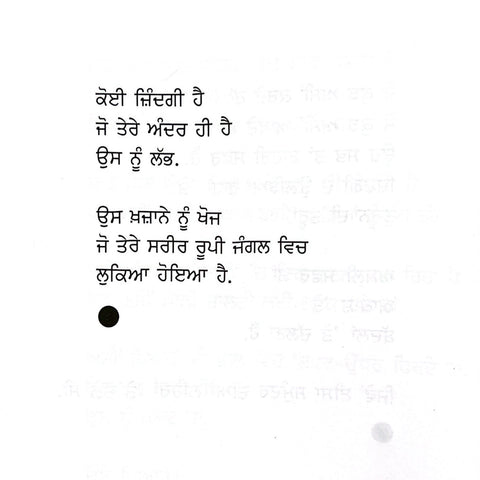 ਕੋਈ ਜ਼ਿੰਦਗੀ ਹੈ
ਜੋ ਤੇਰੇ ਅੰਦਰ ਹੀ ਹੈ
ਉਸ ਨੂੰ ਲੱਭ.
ਉਸ ਖ਼ਜ਼ਾਨੇ ਨੂੰ ਖੋਜ
ਜੋ ਤੇਰੇ ਸਰੀਰ ਰੂਪੀ ਜੰਗਲ ਵਿਚ
ਲੁਕਿਆ ਹੋਇਆ ਹੈ.